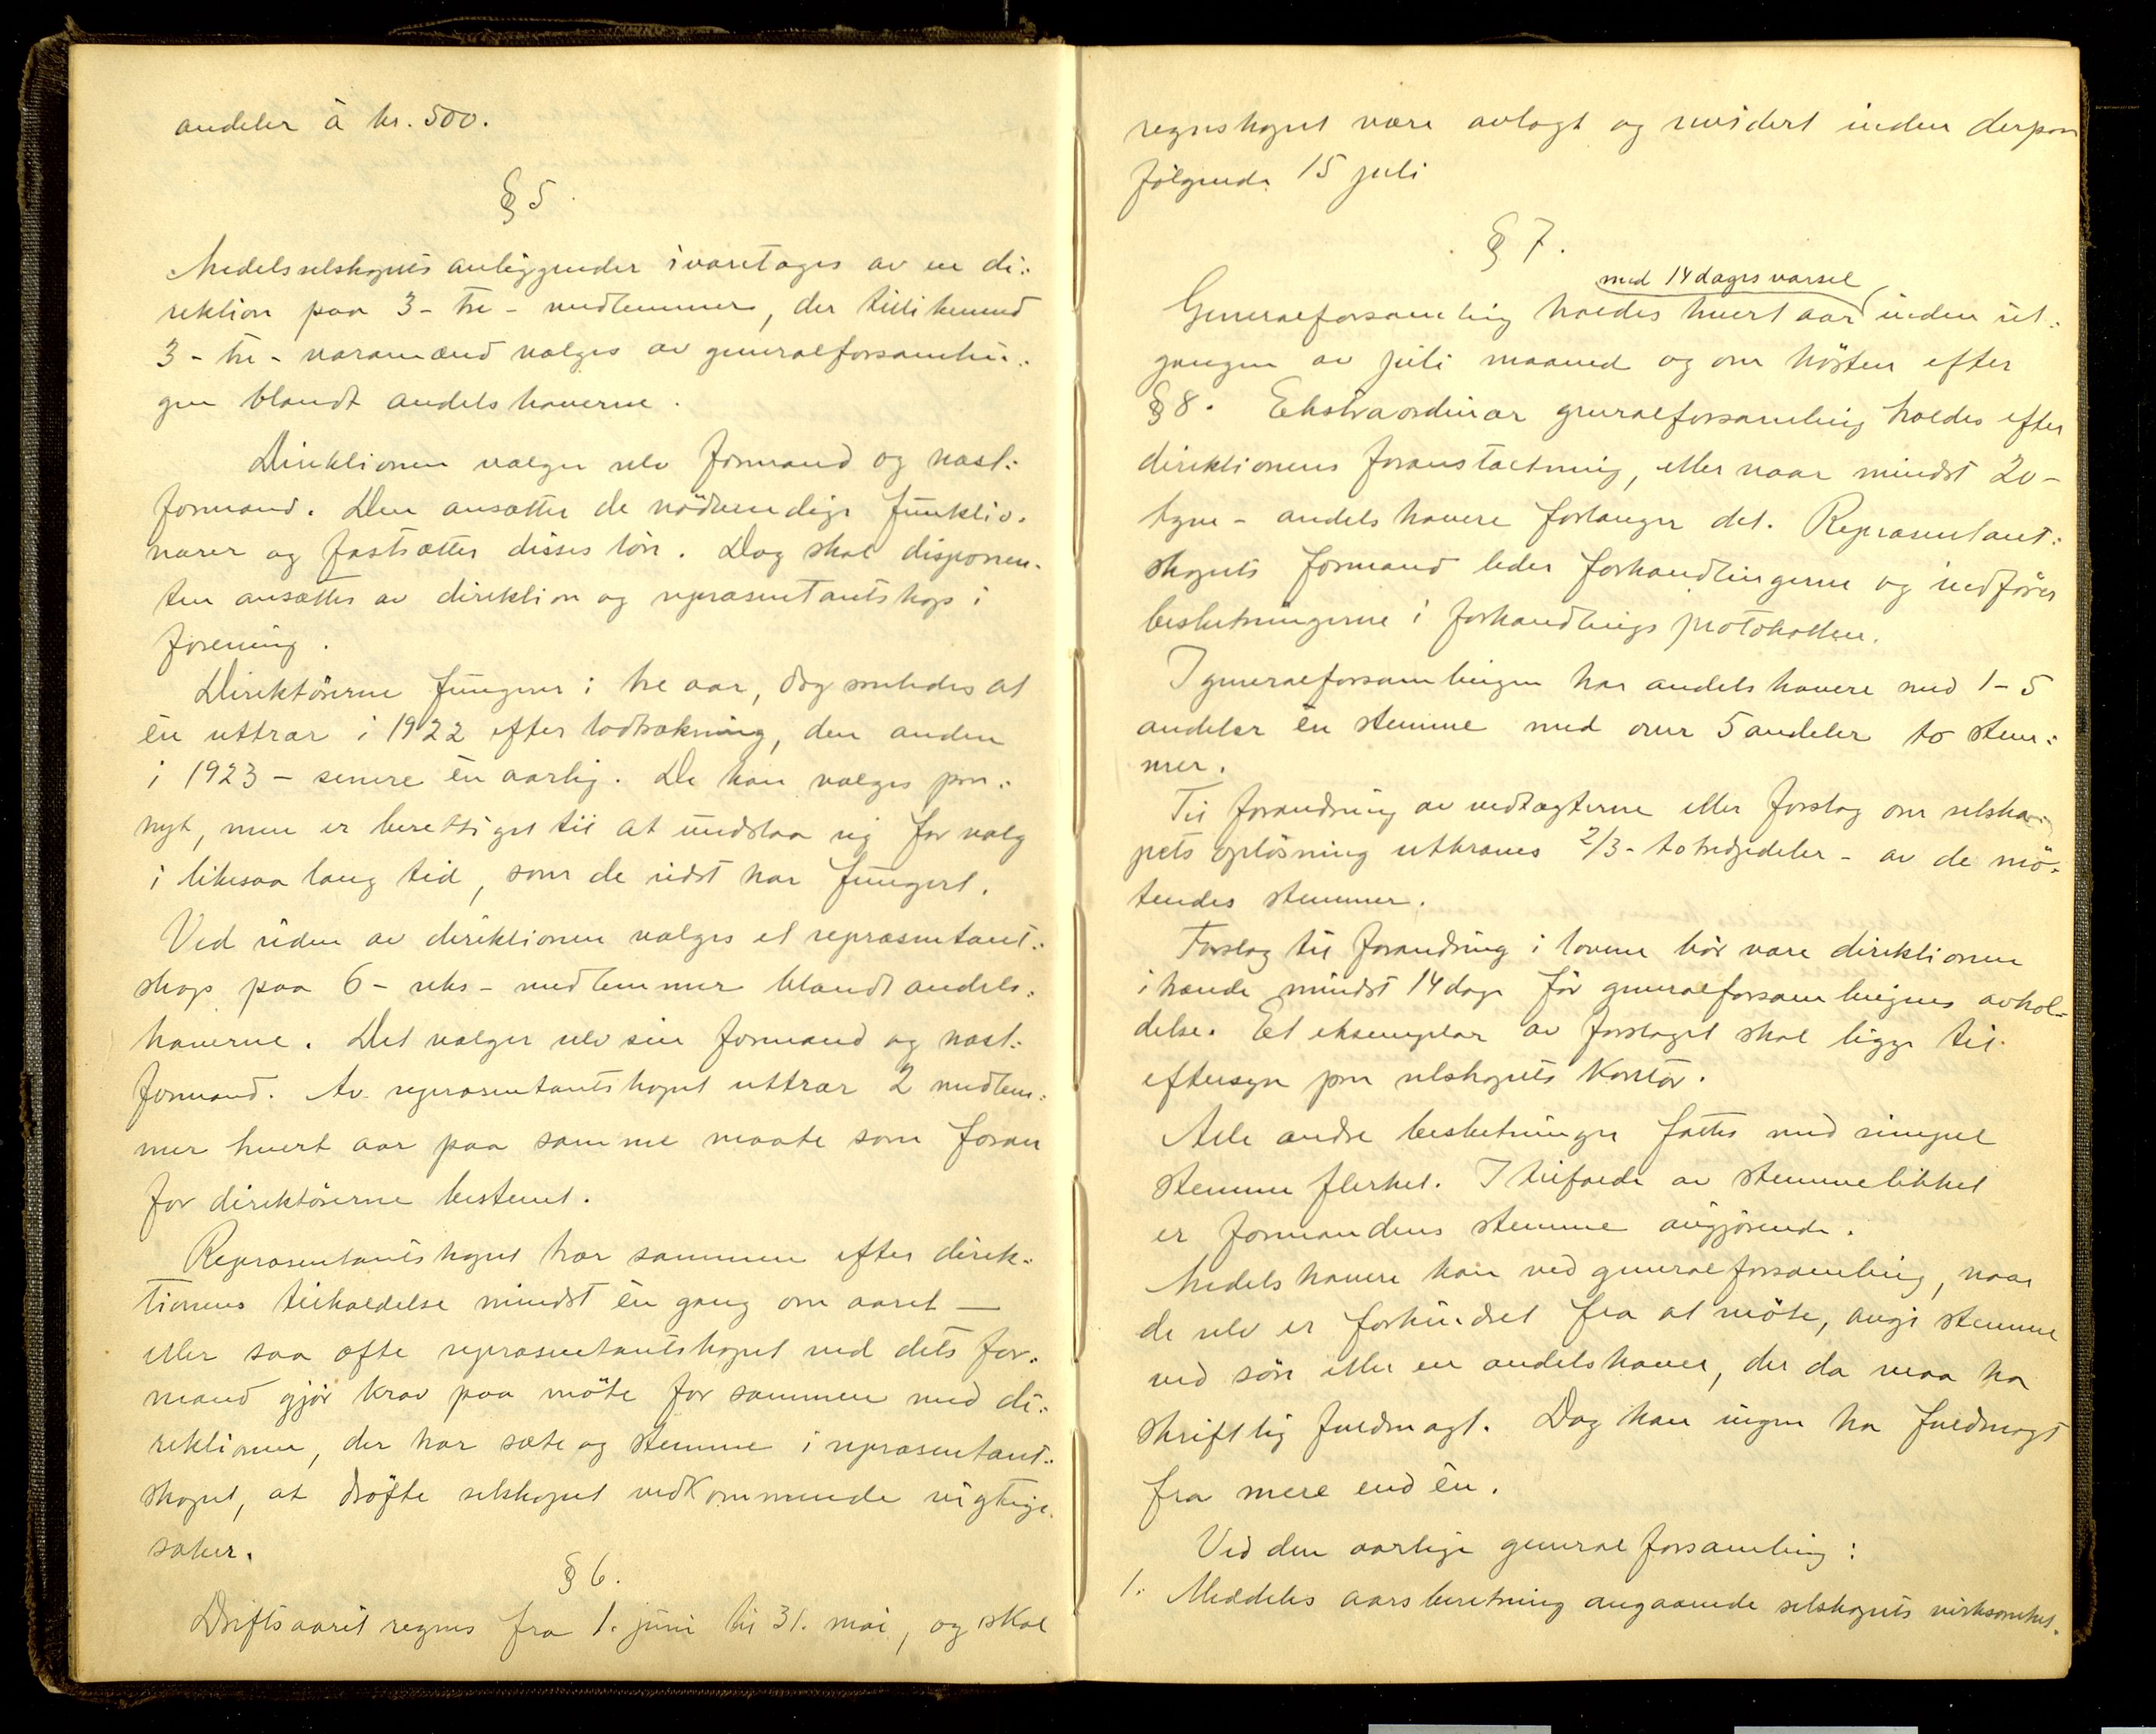 andeler à kr. 500.
§ 5.
Andelsselskapets anliggender ivaretages av en di-
rektion paa 3 - tre - medlemmer, der tillikemed
3 - tre - varamænd vælges av generalforsamlin-
gen blandt andelshaverne.
Direktionen vælger selv formand og næst-
formand. Den ansætter de nödvendige funktio-
nærer og fastsætter disses lön. Dog skal disponen-
ten ansættes av direktion og repræsentantskap i
forening.
Direktörerne fungerer i tre aar, dog saaledes at
èn uttrær i 1922 efter lodtrækning, den anden
i 1923 - senere èn aarlig. De kan vælges paa-
nyt, men er berettiget til at undslaa sig for valg
i likesaa lang tid, som de sidst har fungert.
Ved siden av direktionen vælges et repræsentant-
skap paa 6 - seks - medlemmer blandt andels-
haverne. Det vælger selv sin formand og næst-
formand. Av repræsentantskapet uttrær 2 medlem-
mer hvert aar paa samme maate som foran
for direktörerne bestemt.
Repræsentantskapet trær sammen efter direk-
tionens tilkaldelse mindst èn gang om aaret —
eller saa ofte repræsentantskapet ved dets for-
mand gjör krav paa möte for sammen med di-
rektionen, der har sæte og stemme i repræsentant-
skapet, at dröfte selskapet vedkommende vigtige
saker.
§ 6.
Driftsaaret regnes fra 1. juni til 31. mai, og skal
regnskapet være avlagt og revidert inden derpaa
fölgende 15 juli
§ 7.
med 14 dages varsel
Generalforsamling holdes hvert aar inden ut-
gangen av juli maaned og om hösten efter
§ 8. Ekstraordinær generalforsamling holdes efter
direktionens foranstaltning, eller naar mindst 20 -
tyve - andelshavere forlanger det. Repræsentant-
skapets formand leder forhandlingerne og indförer
beslutningerne i forhandlingsprotokollen.
I generalforsamlingen har andelshavere med 1 - 5
andeler èn stemme med over 5 andeler to stem-
mer.
Til forandring av vedtægterne eller forslag om selska-
pets oplösning utkræves 2/3 - totredjedeler - av de mö-
tendes stemmer.
Forslag til forandring i lovene bör være direktionen
ihænde mindst 14 dage för generalforsamlingens avhol-
delse. Et eksemplar av forslaget skal ligge til
eftersyn paa selskapets kontor.
Alle andre beslutninger fattes med simpel
stemmeflerhet. I tilfælde av stemmelikhet
er formandens stemme avgjörende.
Andelshavere kan ved generalforsamling, naar
de selv er forhindret fra at möte, avgi stemme
ved sön eller en andelshaver, der da maa ha
skriftlig fuldmagt. Dog kan ingen ha fuldmagt
fra mere end èn.
Ved den aarlige generalforsamling:
1. Meddeles aarsberetning angaaende selskapets virksomhet.